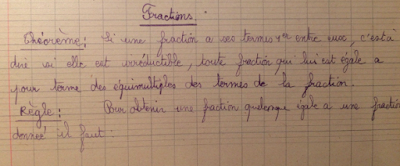 Fractions.
Théorème: Si une fraction a ses termes 1ers entre eux, c'est à
dire si elle est irréductible, toute fraction qui lui est égale a
pour terme des équimultiples des termes de la fraction.
Règle: Pour obtenir une fraction quelconque égale a une fraction
donné il faut: